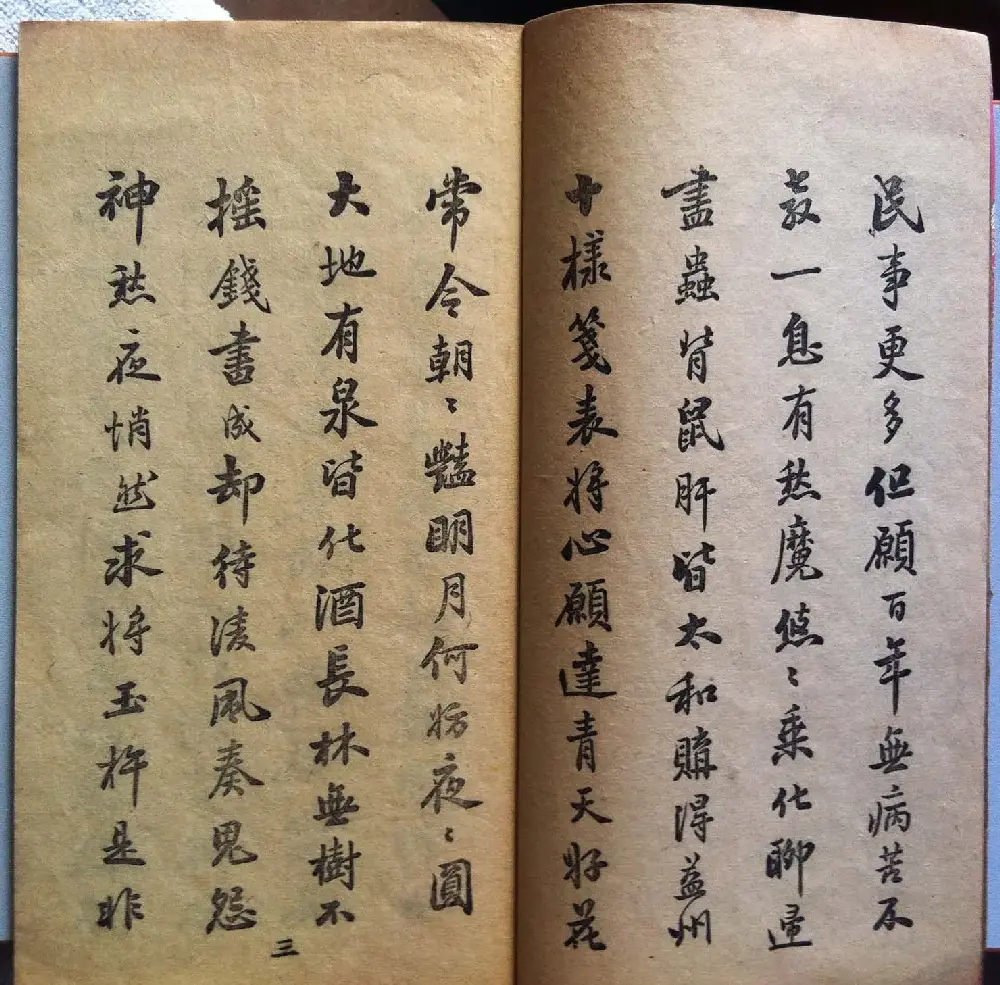 民事更多但願百年無病苦不
教一息有愁魔悠〻乘化聊逕
盡蟲背鼠肝皆太和購得益州
十樣箋表將心願達青天好花
常令朝〻豔明月何妨夜〻圓
大地有泉皆化酒長林無樹不
摇錢書成却待淩風奏鬼怨
神愁夜悄然求將玉杵是昨
三